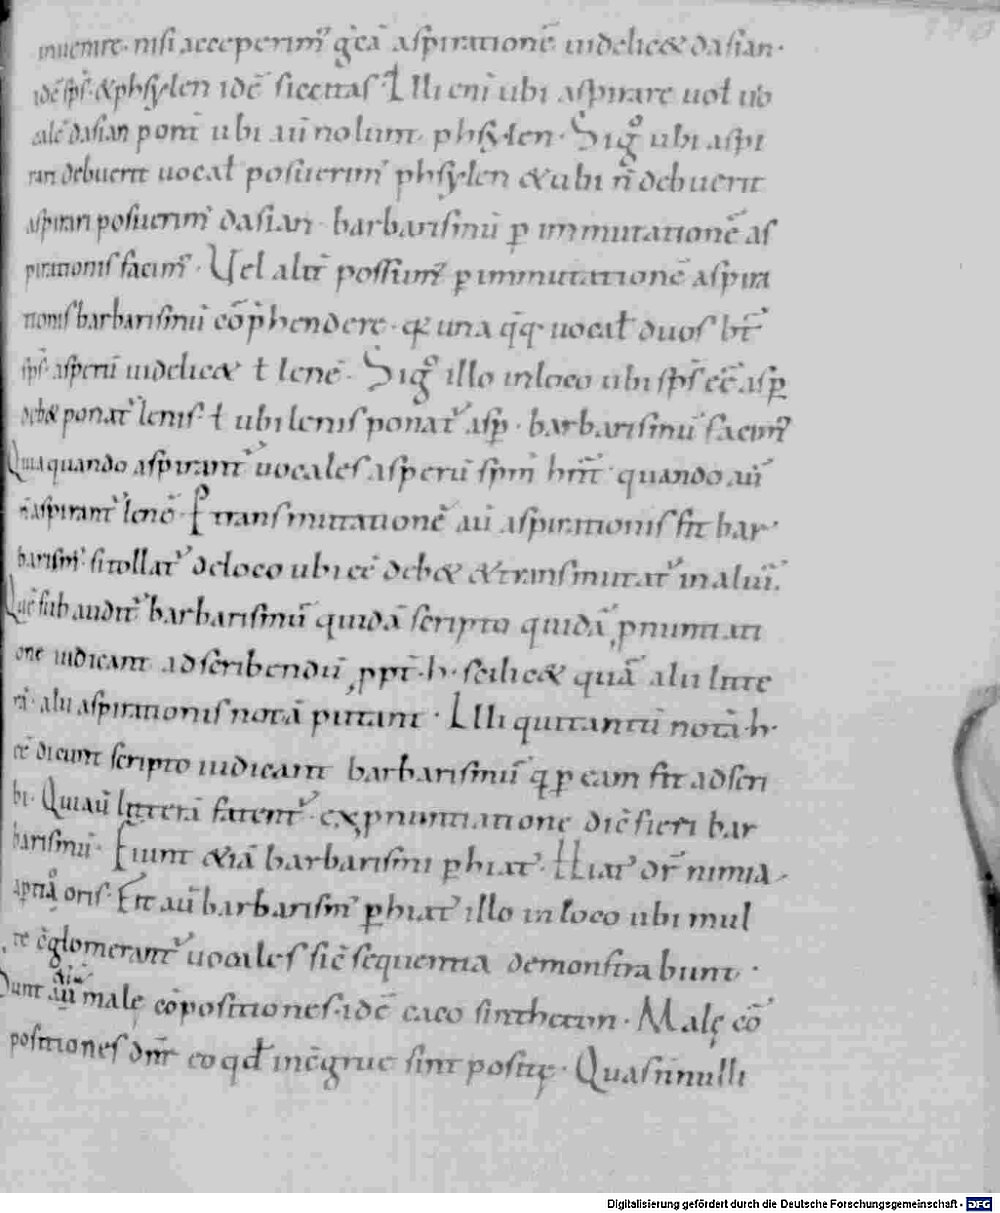 inuenire· nisi acceperim᷒ gr̄cā aspirationē uidelic& dasian·
idē sp̄s· &phsylen idē siccitas ł Illi enī ubi aspirare uoł uo
calē dasian ponī ubi aū nolunt phsylen· Sigͦ ubi aspi
rari debuerit uocaƚ posuerim᷒ phsylen &ubi n̄ debuerit
aspirari posuerim᷒ dasian· barbarismū ꝑ immutationē as
pirationis facim᷒· Vel aliī possum᷒ ꝑ immutationē aspira
tionis barbarismū cōp̄hendere· quia una q̄q· uocaƚ duos hīt
sp̄s· asperū uidelic& ł lenē· Sigͦ illo inloco ubi sp̄s eē asꝑ
deb& ponat᷒ lenis· ł ubi lenis ponat᷒ asꝑ· barbarismū facim᷒
Quia quando aspirant᷒ uocales asperū sp̄m hn̄t· quando aū
n̄ aspirant᷒ lenē· ꝑ transmutationē aū aspirationis fit bar·
barism᷒· si tollat᷒ deloco ubi eē deb& &transmutat᷒ in aliū·
Quē subaudit᷒ barbarismū quidā scripto quidā ꝓnuntiati
one iudicant adscribendū ꝓpt̄·h·scilic& quā alii litte
rā· alii aspirationis notā putant· Illi qui tantū notā·h·
eē dicunt scripto iudicant barbarismū q ꝑ eam fit adscri
bi· Qui aū litterā fatent᷒· ex ꝓnuntiatione dic̄ fieri bar
barismū· Fiunt &iā barbarismi ꝑ hiat᷒· Hiat᷒ dr̄ nimia
aptiͦ oris· Fit aū barbarism᷒ ꝑ hiat᷒ illo inloco ubi mul
te c̄glomerant᷒ uocales sic̄ sequentia demonstrabunt·
Sunt aū male cōpositiones·idē caco sintheton· Malę cō
positiones dn̄r eo qđ inc̄grue sint positę· Quas n̄nulli
Digitalisierung gefördert durch die Deutsche Forschungsgemeinschaft - DFG